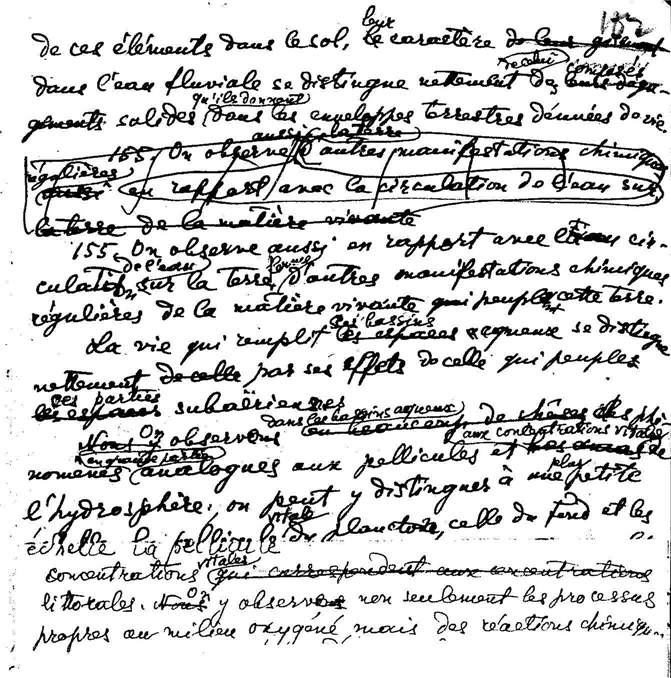 182
leur
de ces éléments dans le sol, le caractère de leur gisement
de celui consisés
dans l'eau fluviale se distingue nettement de leurs déga-
qu'ils donnent
gements solides dans les enveloppes terrestres dénuées de vie
aussi la terre
155. On observe d'autres manifestations chimiques
régulières
aussi en rapport avec la circulation de l'eau sur
la terre de la matière vivante
155. On observe aussi en rapport avec l'eau cir-
de l'eau ferme
culation sur la terre d'autres manifestations chimiques
régulières de la matière vivante qui peuple cette terre.
ces bassins
La vie qui remplit les espaces aqueux se distingue
nettement de celle par ses effets de celle qui peuples
ces parties
les espaces subaériennes
dans les bassins aqueux en beaucoup de choses des phé-
Nous On y observons aux concentrations vitales
en grande partie
nomènes analogues aux pellicules et
plus
l'hydrosphère; on peut y distinguer à une petite
vitale
échelle la pellicule du plancton, celle du fond et les
vitales
concentrations qui correspondent aux concentrations
On
littorales. Nous y observons non seulement les processus
propres au milieu oxygéné mais des réactions chimiqu..